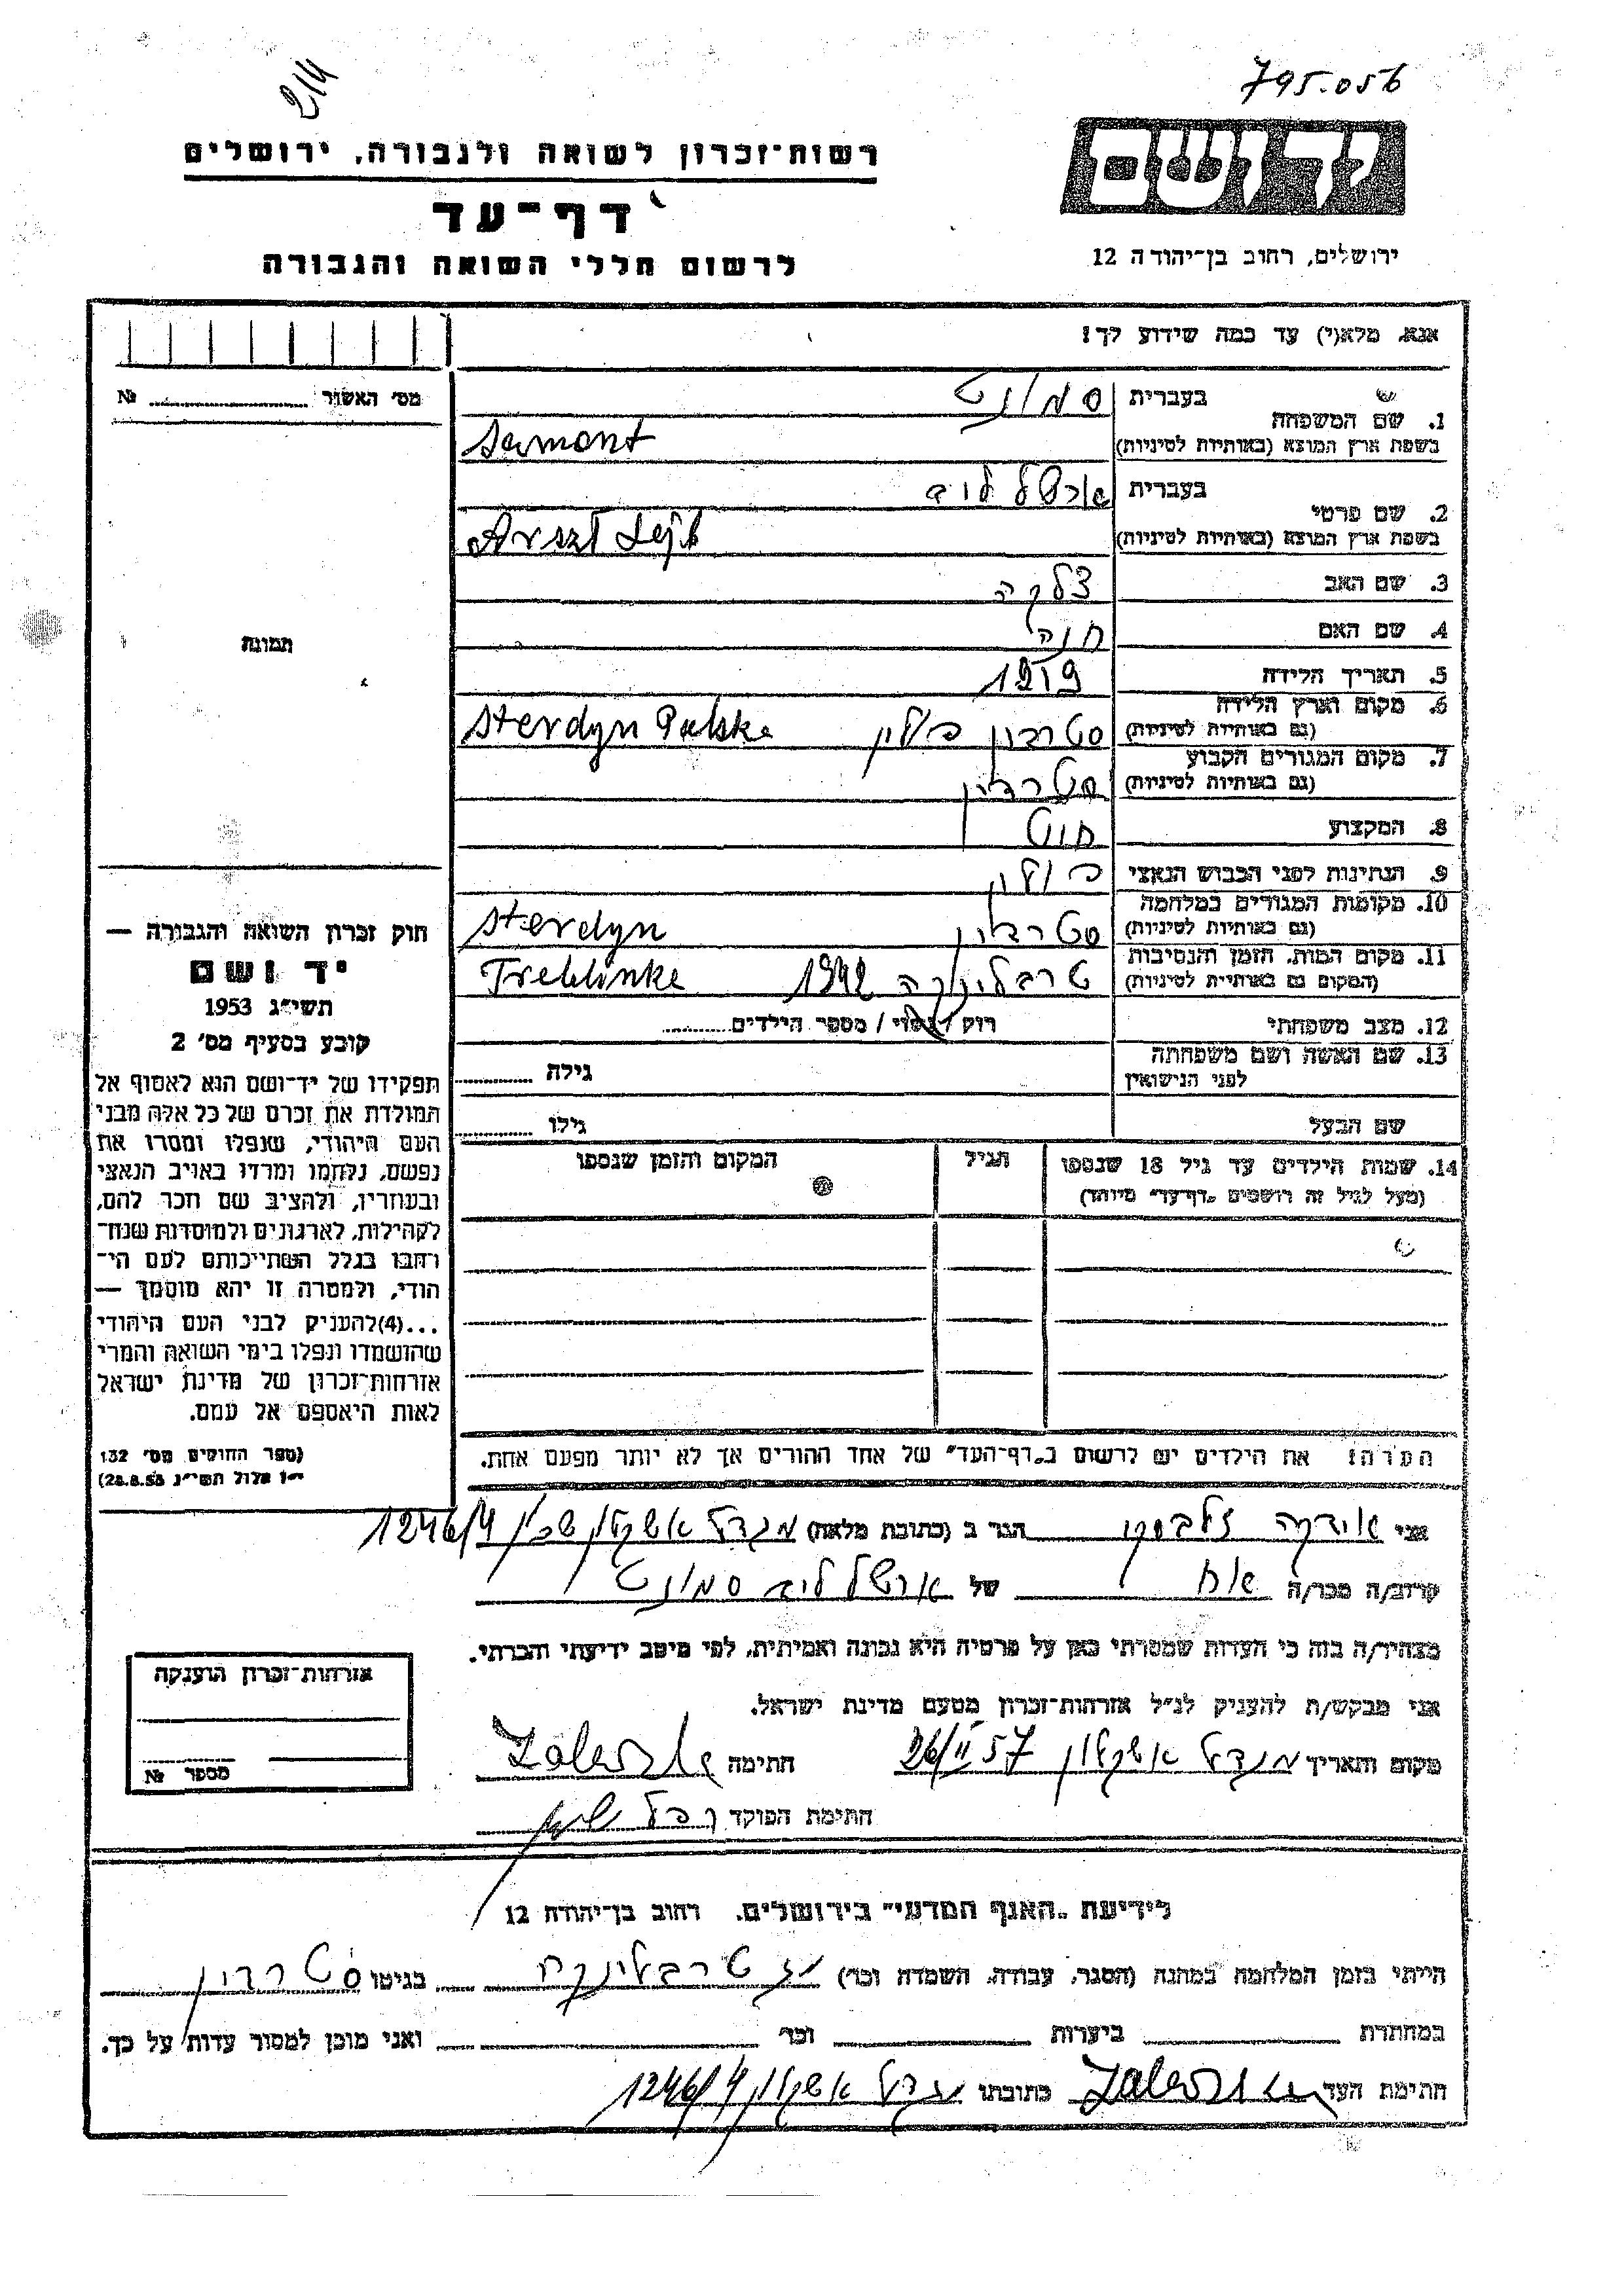 795.056
214
יד ושם
ירושלים, רחוב בן־יהודה 12
רשות־זכרון לשואה ולגבורה, ירושלים
דף־עד
לרשום חללי השואה והגבורה
אנא, מלא(י) עד כמה שידוע לך!
מס' האשור № ........
1. שם המשפחה בעברית סמונט
בשפת ארץ המוצא (באותיות לטיניות) Samont
2. שם פרטי בעברית ארשל ליב
בשפת ארץ המוצא (באותיות לטיניות) Arszl Lejb
3. שם האב
4. שם האם חנה
5. תאריך הלידה 1919
6. מקום וארץ הלידה (גם באותיות לטיניות) סטרדין פולין Sterdyn Polska
7. מקום המגורים הקבוע (גם באותיות לטיניות) סטרדין
8. המקצוע חייט
9. הנתינות לפני הכבוש הנאצי פולין
10. מקומות המגורים במלחמה (גם באותיות לטיניות) סטרדין Sterdyn
11. מקום המות, הזמן והנסיבות (המקום גם באותיות לטיניות) טרבלינקה 1942 Treblinka
12. מצב משפחתי רוק / נשוי / מספר הילדים........
13. שם האשה ושם משפחתה לפני הנישואין גילה ........
שם הבעל גילו ........
14. שמות הילדים עד גיל 18 שנספו (מעל לגיל זה רושמים "דף־עד" מיוחד) הגיל המקום והזמן שנספו
הערה: את הילדים יש לרשום ב"דף־העד" של אחד ההורים אך לא יותר מפעם אחת.
תמונה
חוק זכרון השואה והגבורה —
יד ושם
תשי"ג 1953
קובע בסעיף מס' 2
תפקידו של יד־ושם הוא לאסוף אל
המולדת את זכרם של כל אלה מבני
העם היהודי, שנפלו ומסרו את
נפשם, נלחמו ומרדו באויב הנאצי
ובעוזריו, ולהציב שם וזכר להם,
לקהילות, לארגונים ולמוסדות שנח־
רבו בגלל השתייכותם לעם הי־
הודי, ולמטרה זו יהא מוסמך —
...(4)להעניק לבני העם היהודי
שהושמדו ונפלו בימי השואה והמרי
אזרחות־זכרון של מדינת ישראל
לאות היאספם אל עמם.
(ספר החוקים מס' 132
י"ז אלול תשי"ג 28.8.53)
אני הגר ב (כתובת מלאה) מגדל אשקלון שכון 1246/4
קרוב/ה מכר/ה אח של ארשל ליב סמונט
מצהיר/ה בזה כי העדות שמסרתי כאן על פרטיה היא נכונה ואמיתית, לפי מיטב ידיעתי והכרתי.
אני מבקש/ת להעניק לנ"ל אזרחות־זכרון מטעם מדינת ישראל.
מקום ותאריך מגדל אשקלון 26/II 57 חתימה
חתימת הפוקד
אזרחות־זכרון הוענקה
מספר №
לידיעת "האגף המדעי" בירושלים, רחוב בן־יהודה 12
הייתי בזמן המלחמה במחנה (הסגר, עבודה, השמדה וכו') טרבלינקה בגיטו סטרדין
במחתרת ביערות וכו' ואני מוכן למסור עדות על כך.
חתימת העד כתובתו מגדל אשקלון 1246/4